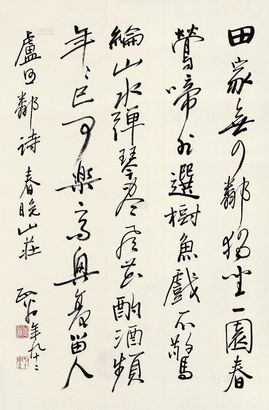 田家無四鄰獨坐一園春
鶯啼非選樹魚戲不驚
綸山水彈琴盡風花酌酒頻
年年已可樂高興復留人
盧照鄰詩春晚山莊
年九十二